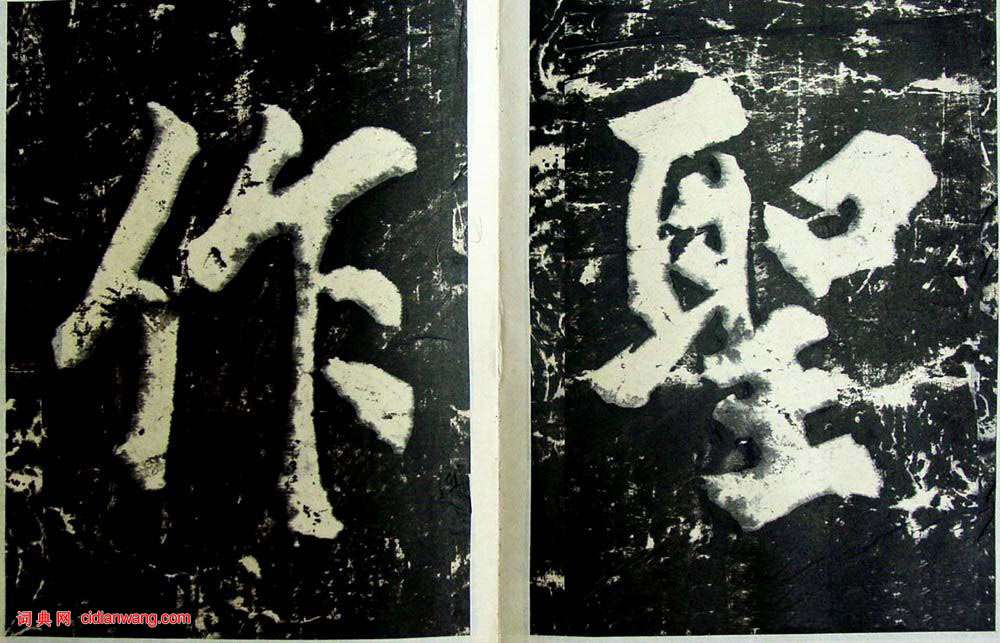 聖
作
词典网 cidianwang.com